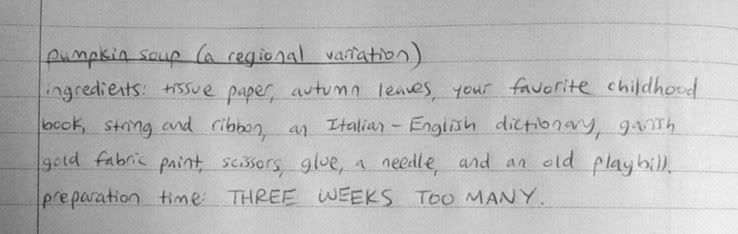 pumpkin soup (a regional variation)
ingredients: tissue paper, autumn leaves, your favorite childhood
book, string and ribbon, an Italian-English dictionary, garish
gold fabric paint, scissors, glue, a needle, and an old playbill.
preparation time: THREE WEEKS TOO MANY.